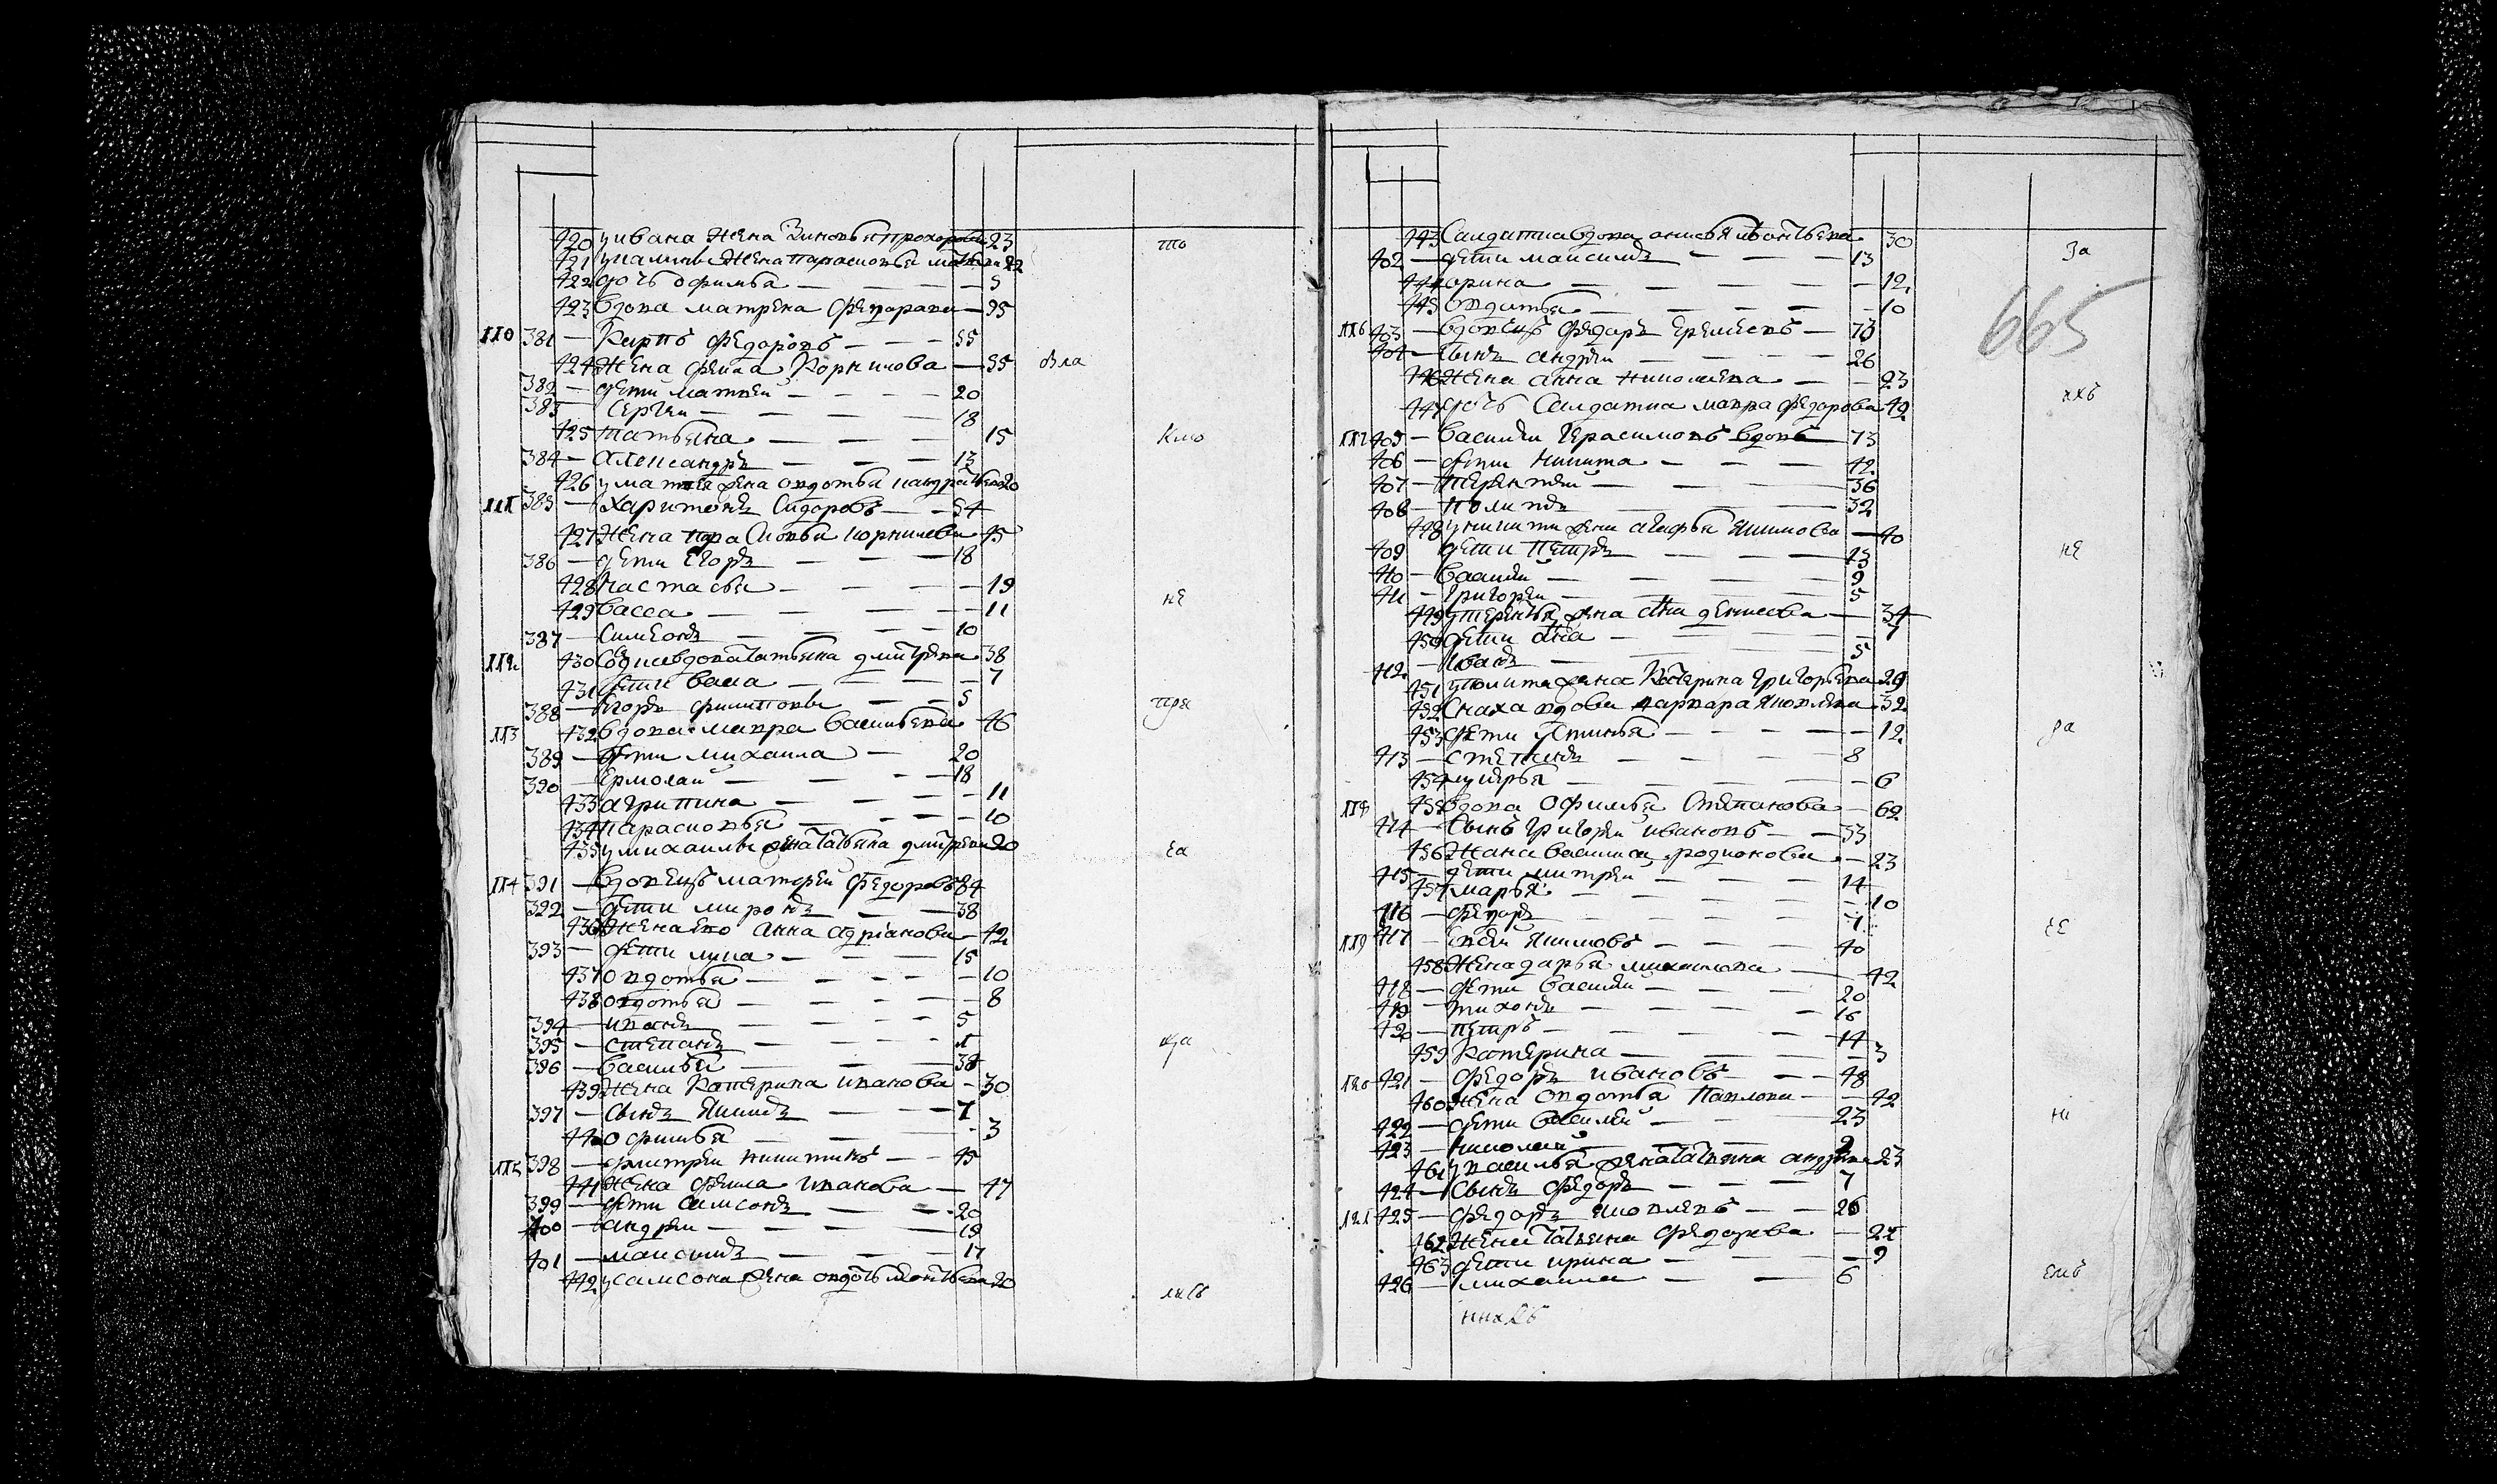 420 у ивана жена Зиновья Прохорова 23
421 жена парасковья 22
422 дочь офимья — 5
423 вдова матрена федорова — 35
110 381 — Карпъ федоровъ — 55
424 жена фекла Корнилова — 55 Вла
382 — дети матвей — 20
383 Сергеи — 18
425 татьяна — 15
384 — Александръ — 13
426 у матвея жена овдотья 20
111 385 — Харитонъ Сидоровъ — 54
427 жена парасковья корнилова 45
386 — дети Егоръ — 18
428 настасья — 19
429 васса — 11
387 — Симеонъ — 10
112 430 вдова татьяна дмитрева 38
431 дети васа — 7
388 — Егоръ филиповъ — 5
113 432 вдова мавра васильева 46
389 — дети михаила — 20
390 — Ермолаи — 18
433 агрипина — 11
434 парасковья — 10
435 у михаилы жена татьяна дмитрева 20
114 391 — вдовецъ матфеи федоровъ 84
392 — дети миронъ — 38
436 жена ево Анна Адрианова — 42
393 — дети лука — 15
437 овдотья — 10
438 овдотья — 8
394 — иванъ — 5
395 — степанъ — 1
396 — василеи — 38
439 жена Катерина иванова — 30
397 — сынъ якимъ — 7
440 офимья — 3
115 398 — дмитреи никитинъ — 45
441 жена фекла иванова — 47
399 — дети самсонъ — 20
400 — андреи — 19
401 — максимъ — 17
442 у самсона жена овдотья 20
то
Кто
не
пре
ка
443 Салдатка вдова анисья 30
402 — дети максимъ — 13
444 орина — 12
445 овдотья — 10
116 403 — вдовецъ федоръ Еремеевъ — 73
404 — сынъ андреи — 26
446 жена анна николаева — 23
447 дочь Салдатка мавра федорова 42
117 405 — василеи герасимовъ вдовъ — 73
406 — дети никита — 42
407 — терентеи — 36
408 — 32
448 у никиты жена агафья якимова — 40
409 дети петръ — 13
410 — василеи — 9
411 — григореи — 5
449 у терентья жена анна денисова — 34
450 дети анна — 7
412 — иванъ — 5
451 жена Катерина григорьева 29
452 Сноха вдова варвара яковлева 32
453 дети устинья — 12
413 — степанъ — 8
454 — 6
118 455 вдова офимья Степанова — 62
414 — Сынъ григореи ивановъ — 53
456 жена василиса родионова — 23
415 — дети митреи — 14
457 марья — 10
416 — федоръ — 1
119 417 — якимовъ — 40
458 жена дарья михаилова — 42
418 — дети василеи — 20
419 — тихонъ — 16
420 — петръ — 14
459 Катерина — 3
120 421 — федоръ ивановъ — 48
460 жена овдотья Павлова — 42
422 — дети василеи — 23
423 — николаи — 2
461 у василья жена татьяна 23
424 — Сынъ федоръ — 7
121 425 — федоръ яковлевъ — 26
462 жена татьяна федорова — 24
463 дети ирина — 9
426 — михаила — 6
За
665
не
ра